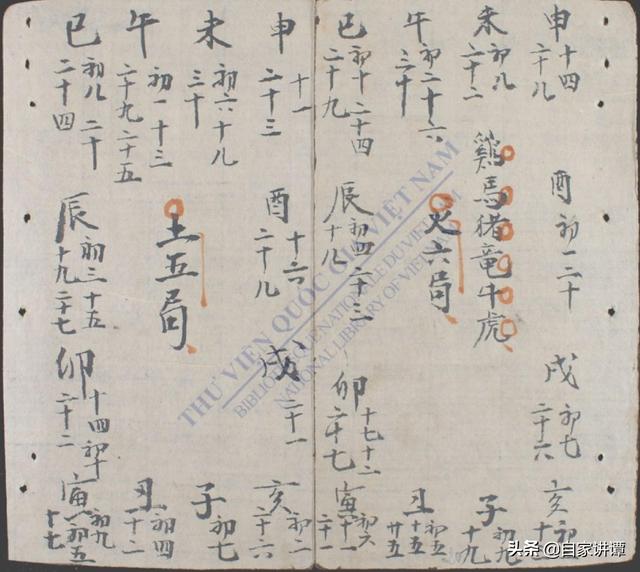 申
十四
二十八
未
初八
二十二
午
初二十六
三十
巳
初十二十四
二十九
酉初一二十
雞馬猪竜牛虎
火六局
辰
初四二十三
十八
戌
初七
二十六
卯
十七十二
二十七
亥
子
初九
十九
丑
初五
十五
廿五
寅
初六
申
十一
二十三
未
初六十八
三十
午
初一十三
二十九二十五
巳
初八二十
二十四
酉
十六
二十八
土五局
辰
初三十五
十九二十七
戌
二十一
卯
十四初十
二十二
亥
初二
二十六
子
初七
丑
初四
寅
初九
初五
十七
THƯ VIỆN QUỐC GIA VIỆT NAM
BIBLIOTHÈQUE NATIONALE DU VIETNAM
NATIONAL LIBRARY OF VIETNAM
头条 @自家讲谭